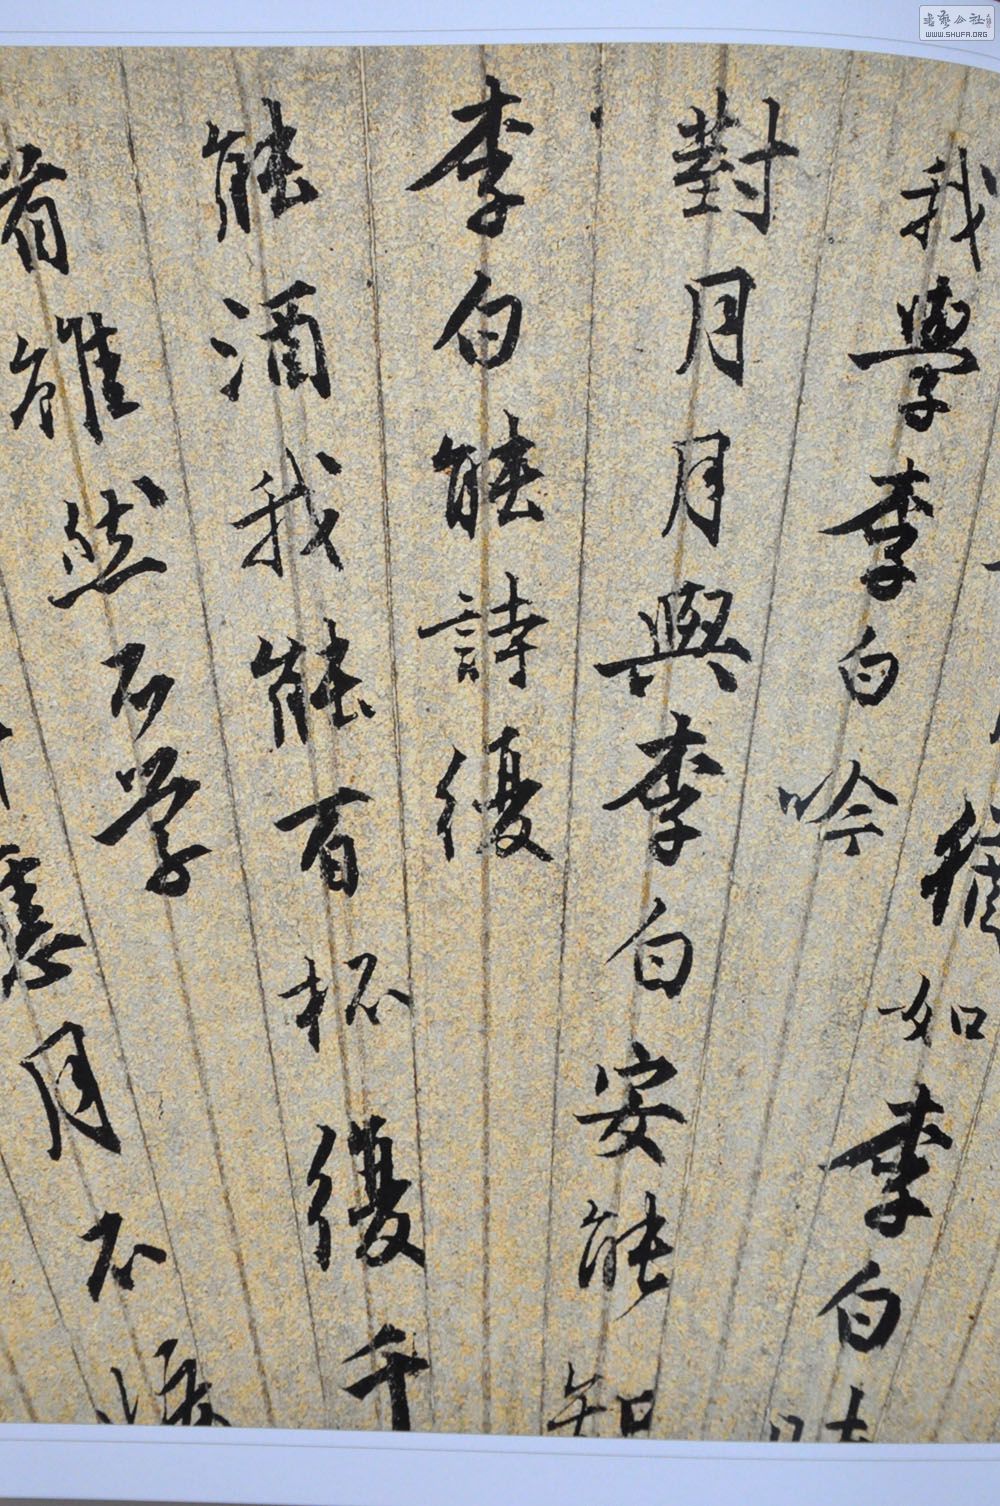 猶如李白時
我學李白吟
對月月與李白安能知
李白能詩復
能酒我能百杯復千
首雖然不學
應月不嫌
書藝公社
WWW.SHUFA.ORG